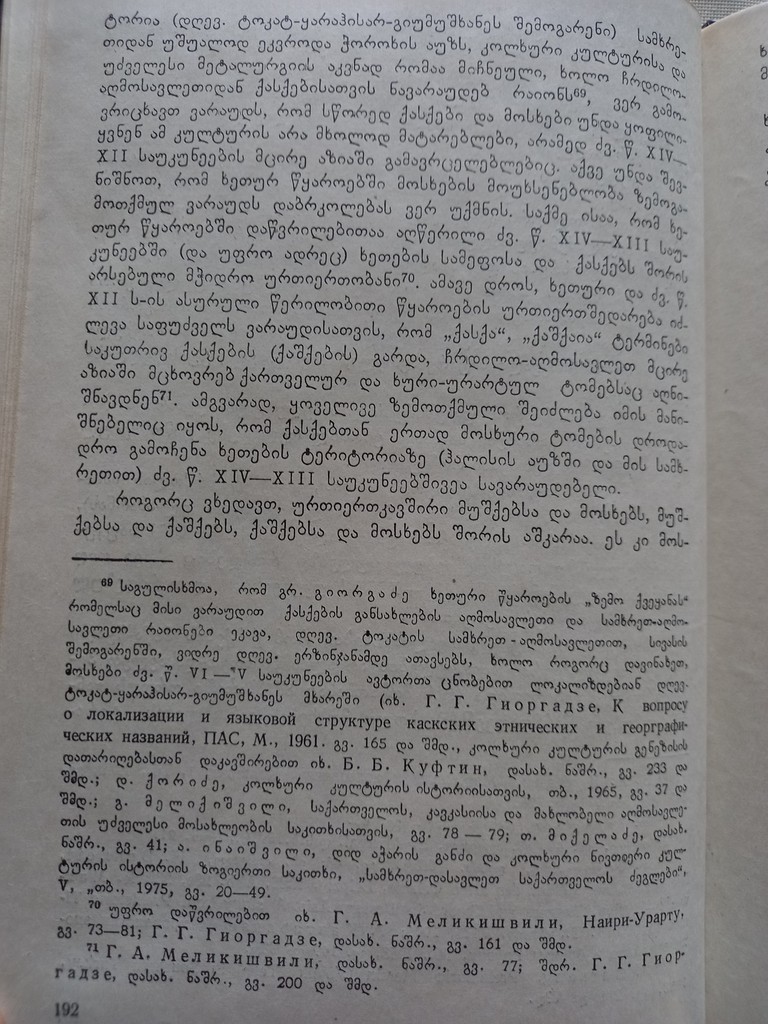 ტორია (დღევ. ტოკატ-ყარაჰისარ-გიუმუშხანეს შემოგარენი) სამხრე-
თიდან უშუალოდ ეკვროდა ჭოროხის აუზს, კოლხური კულტურისა და
უძველესი მეტალურგიის აკვნად რომაა მიჩნეული, ხოლო ჩრდილო-
აღმოსავლეთიდან ქასქებისათვის ნავარაუდებ რაიონს⁶⁹, ვერ გამო-
ვრიცხავთ ვარაუდს, რომ სწორედ ქასქები და მოსხები უნდა ყოფილი-
ყვნენ ამ კულტურის არა მხოლოდ მატარებლები, არამედ ძვ. წ. XIV—
XII საუკუნეების მცირე აზიაში გამავრცელებლებიც. აქვე უნდა შევ-
ნიშნოთ, რომ ხეთურ წყაროებში მოსხების მოუხსენებლობა ზემოგა-
მოთქმულ ვარაუდს დაბრკოლებას ვერ უქმნის. საქმე ისაა, რომ ხე-
თურ წყაროებში დაწვრილებითაა აღწერილი ძვ. წ. XIV—XIII საუ-
კუნეებში (და უფრო ადრეც) ხეთების სამეფოსა და ქასქებს შორის
არსებული მჭიდრო ურთიერთობანი⁷⁰. ამავე დროს, ხეთური და ძვ. წ.
XII ს-ის ასურული წერილობითი წყაროების ურთიერთშედარება იძ-
ლევა საფუძველს ვარაუდისათვის, რომ „ქასქა“, „ქაშქაია“ ტერმინები
საკუთრივ ქასქების (ქაშქების) გარდა, ჩრდილო-აღმოსავლეთ მცირე
აზიაში მცხოვრებ ქართველურ და ხური-ურარტულ ტომებსაც აღნი-
შნავდნენ⁷¹. ამგვარად, ყოველივე ზემოთქმული შეიძლება იმის მანი-
შნებელიც იყოს, რომ ქასქებთან ერთად მოსხური ტომების დროდა-
დრო გამოჩენა ხეთების ტერიტორიაზე (ჰალისის აუზში და მის სამხ-
რეთით) ძვ. წ. XIV—XIII საუკუნეებშივეა სავარაუდებელი.
როგორც ვხედავთ, ურთიერთკავშირი მუშქებსა და მოსხებს, მუშ-
ქებსა და ქაშქებს, ქაშქებსა და მოსხებს შორის აშკარაა. ეს კი მოს-
⁶⁹ საგულისხმოა, რომ გრ. გიორგაძე ხეთური წყაროების „ზემო ქვეყანას“
რომელსაც მისი ვარაუდით ქასქების განსახლების აღმოსავლეთი და სამხრეთ-აღმო-
სავლეთი რაიონები ეკავა, დღევ. ტოკატის სამხრეთ-აღმოსავლეთით, სივასის
შემოგარენში, ვიდრე დღევ. ერზინჯანამდე ათავსებს, ხოლო როგორც დავინახეთ,
მოსხები ძვ. წ. VI—V საუკუნეების ავტორთა ცნობებით ლოკალიზდებიან დღევ.
ტოკატ-ყარაჰისარ-გიუმუშხანეს მხარეში (იხ. Г. Г. Гиоргадзе, К вопросу
о локализации и языковой структуре каскских этнических и георграфи-
ческих названий, ПАС, М., 1961. გვ. 165 და შმდ., კოლხური კულტურის გენეზისის
დათარიღებასთან დაკავშირებით იხ. Б. Б. Куфтин, დასახ. ნაშრ., გვ. 233 და
შმდ.; დ. ქორიძე, კოლხური კულტურის ისტორიისათვის, თბ., 1965, გვ. 37 და
შმდ.; გ. მელიქიშვილი, საქართველოს, კავკასიისა და მახლობელი აღმოსავლე-
თის უძველესი მოსახლეობის საკითხისათვის, გვ. 78 — 79; თ. მიქელაძე, დასახ.
ნაშრ., გვ. 41; ა. ინაიშვილი, დიდ აჭარის განძი და კოლხური ნივთიერი კულ-
ტურის ისტორიის ზოგიერთი საკითხი, „სამხრეთ-დასავლეთ საქართველოს ძეგლები“,
V, „თბ., 1975, გვ. 20—49.
⁷⁰ უფრო დაწვრილებით იხ. Г. А. Меликишвили, Наири-Урарту,
გვ. 73—81; Г. Г. Гиоргадзе, დასახ. ნაშრ., გვ. 161 და შმდ.
⁷¹ Г. А. Меликишвили, დასახ. ნაშრ., გვ. 77; შდრ. Г. Г. Гиор-
гадзе, დასახ. ნაშრ., გვ. 200 და შმდ.
192